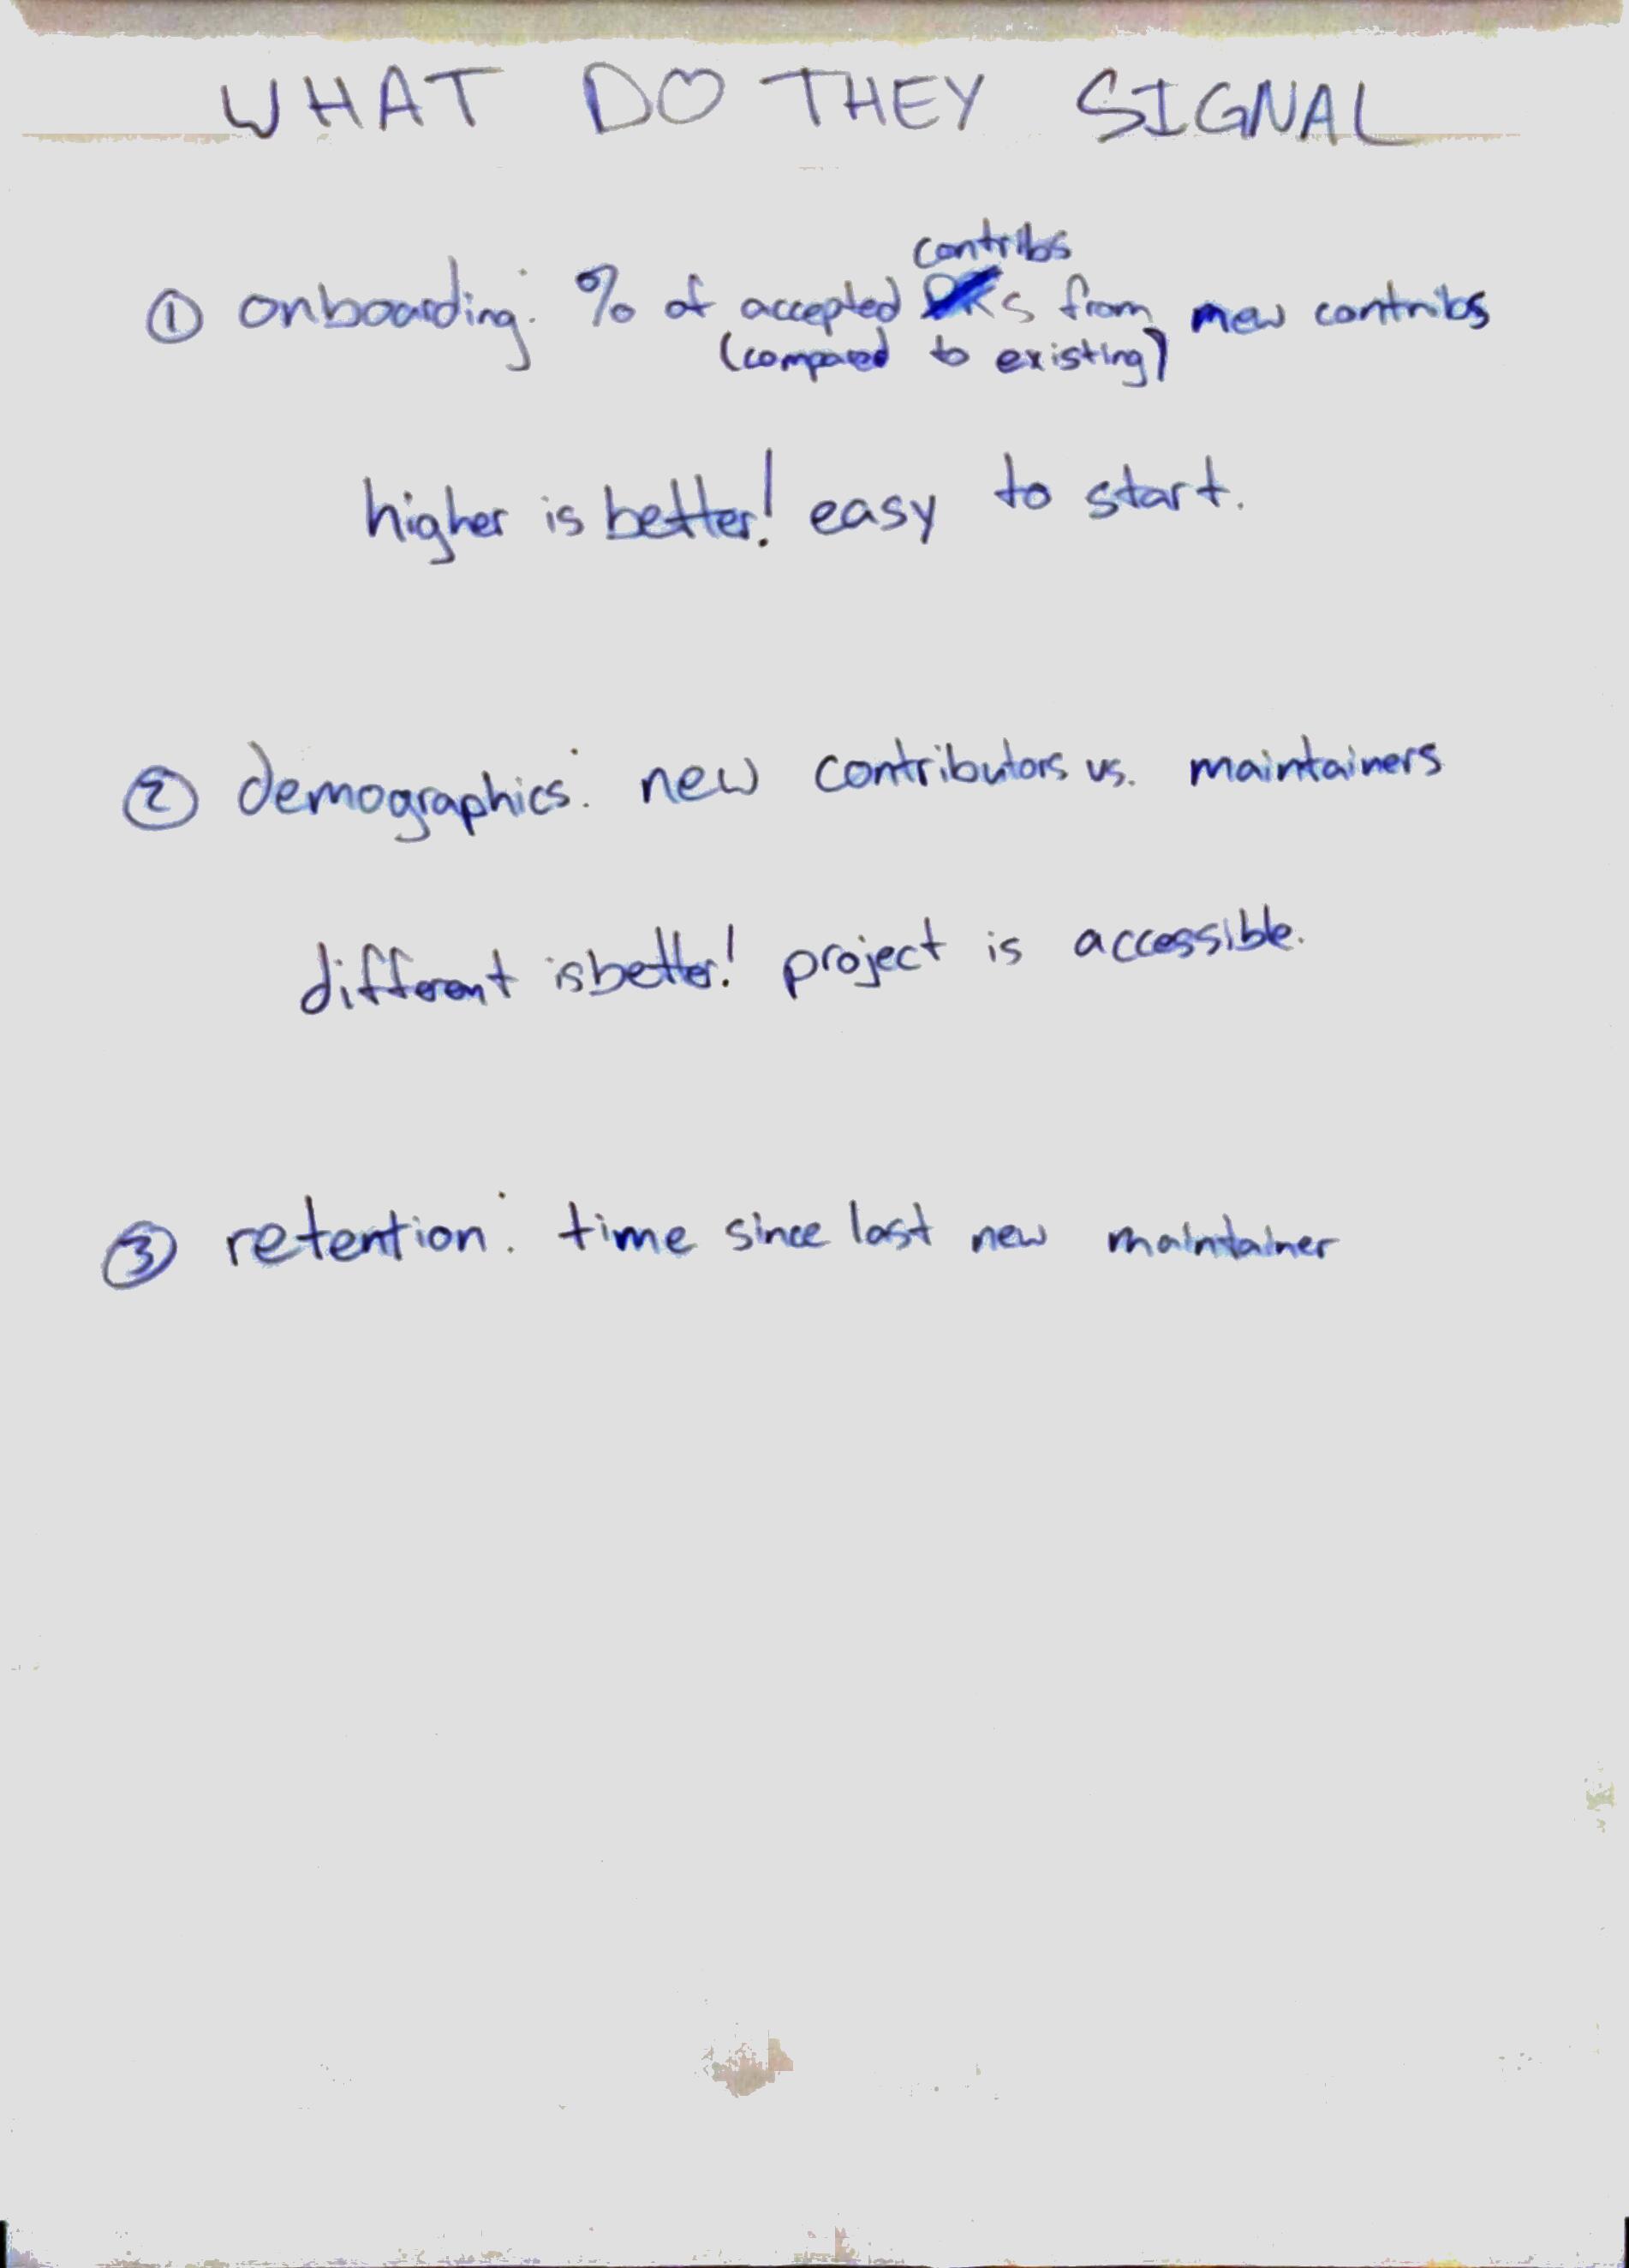 WHAT DO THEY SIGNAL
contribs
① onboarding: % of accepted PRs from new contribs
(compared to existing)
higher is better! easy to start.
② demographics: new contributors vs. maintainers
different is better! project is accessible.
③ retention: time since last new maintainer